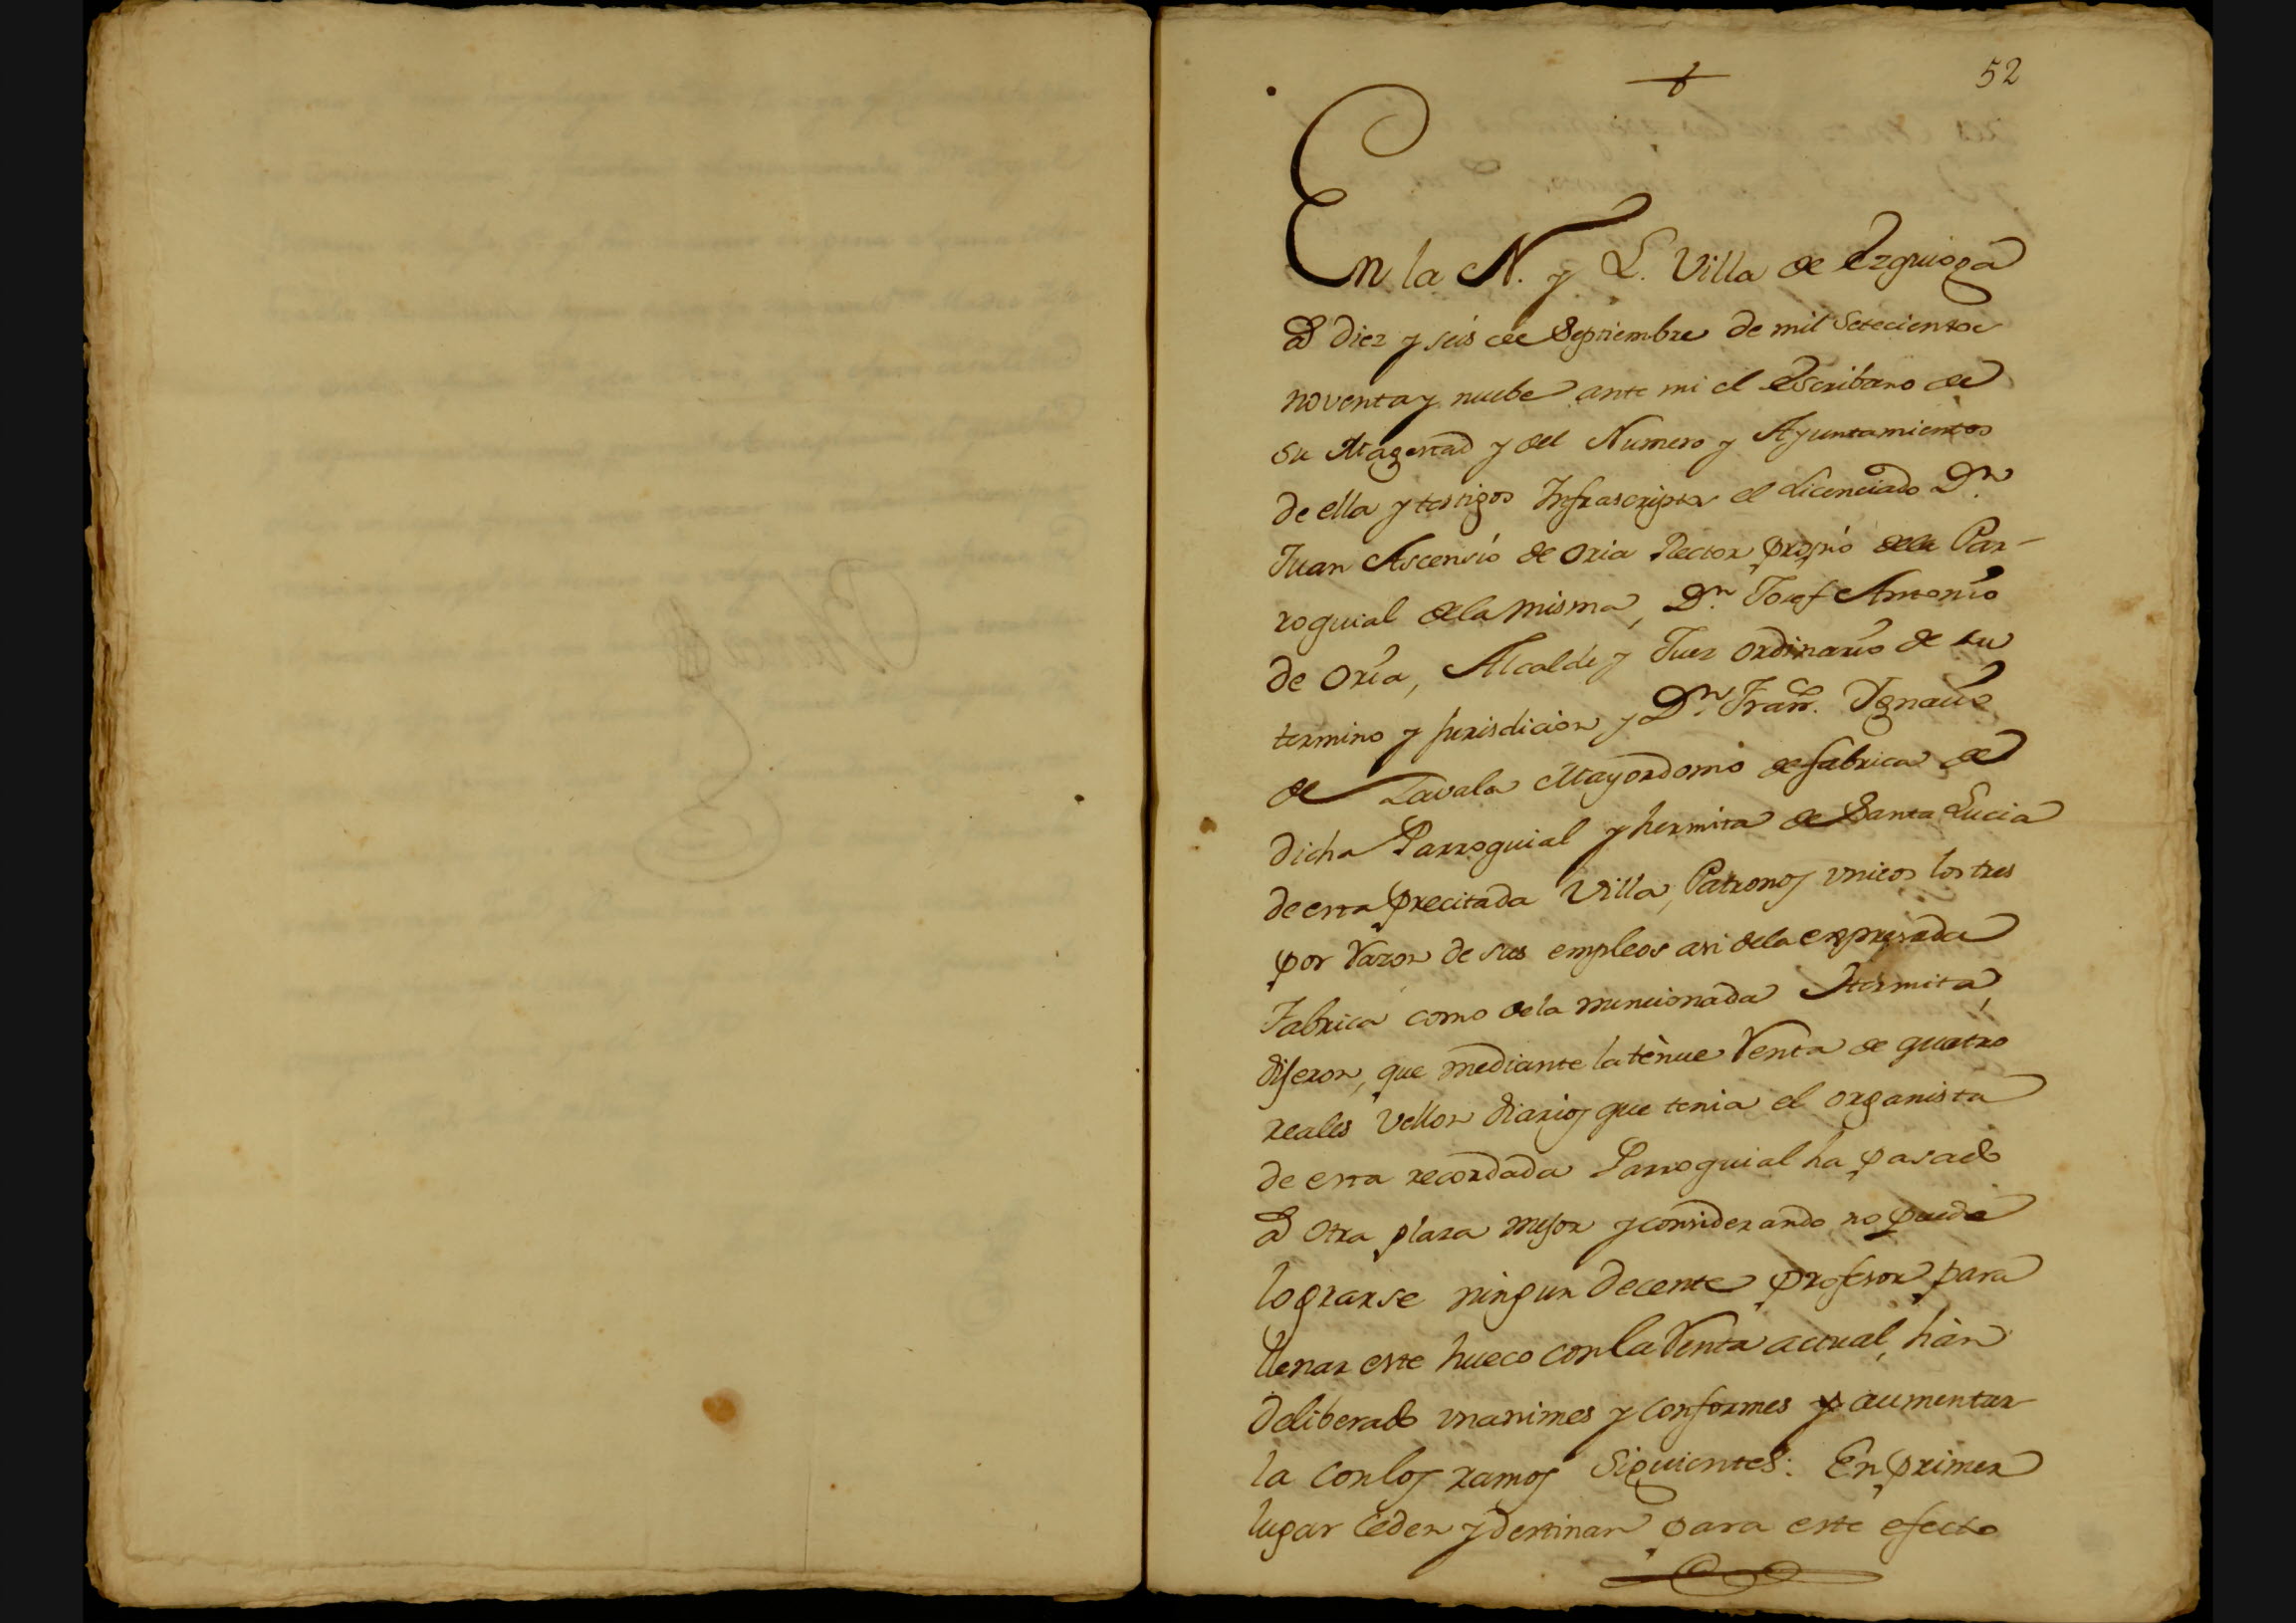 52
En la N. y L. Villa de Ezquioga
a diez y seis de Septiembre de mil Setecientos
noventa y nuebe ante mi el Escribano de
su Magestad y del Numero y Ayuntamientos
de ella y testigos Infrascriptos el Licenciado Dn.
Juan Ascensio de Oria Rector proprio dela Par-
roquial dela misma, Dn. Josef Antonio
de Oria, Alcalde y Juez ordinario de su
termino y jurisdicion y Dn. Franco. Ygnacio
de Zavala Mayordomo de fabrica de
dicha Parroquial y hermita de Santa Lucia
de esta precitada Villa, Patronos vnicos los tres
por razon de sus empleos asi dela expresada
Fabrica como dela mencionada Hermita,
dijeron, que mediante la ténue Renta de quatro
reales Vellon diarios que tenia el organista
de esta recordada Parroquial ha pasado
a otra plaza mejor y considerando no puede
lograrse ningun decente profesor para
llenar este hueco con la Renta actual, hàn
deliberado vnanimes y conformes aumentar
la con los ramos Siguientes: En primer
lugar Ceden y destinan para este efecto
Blanca